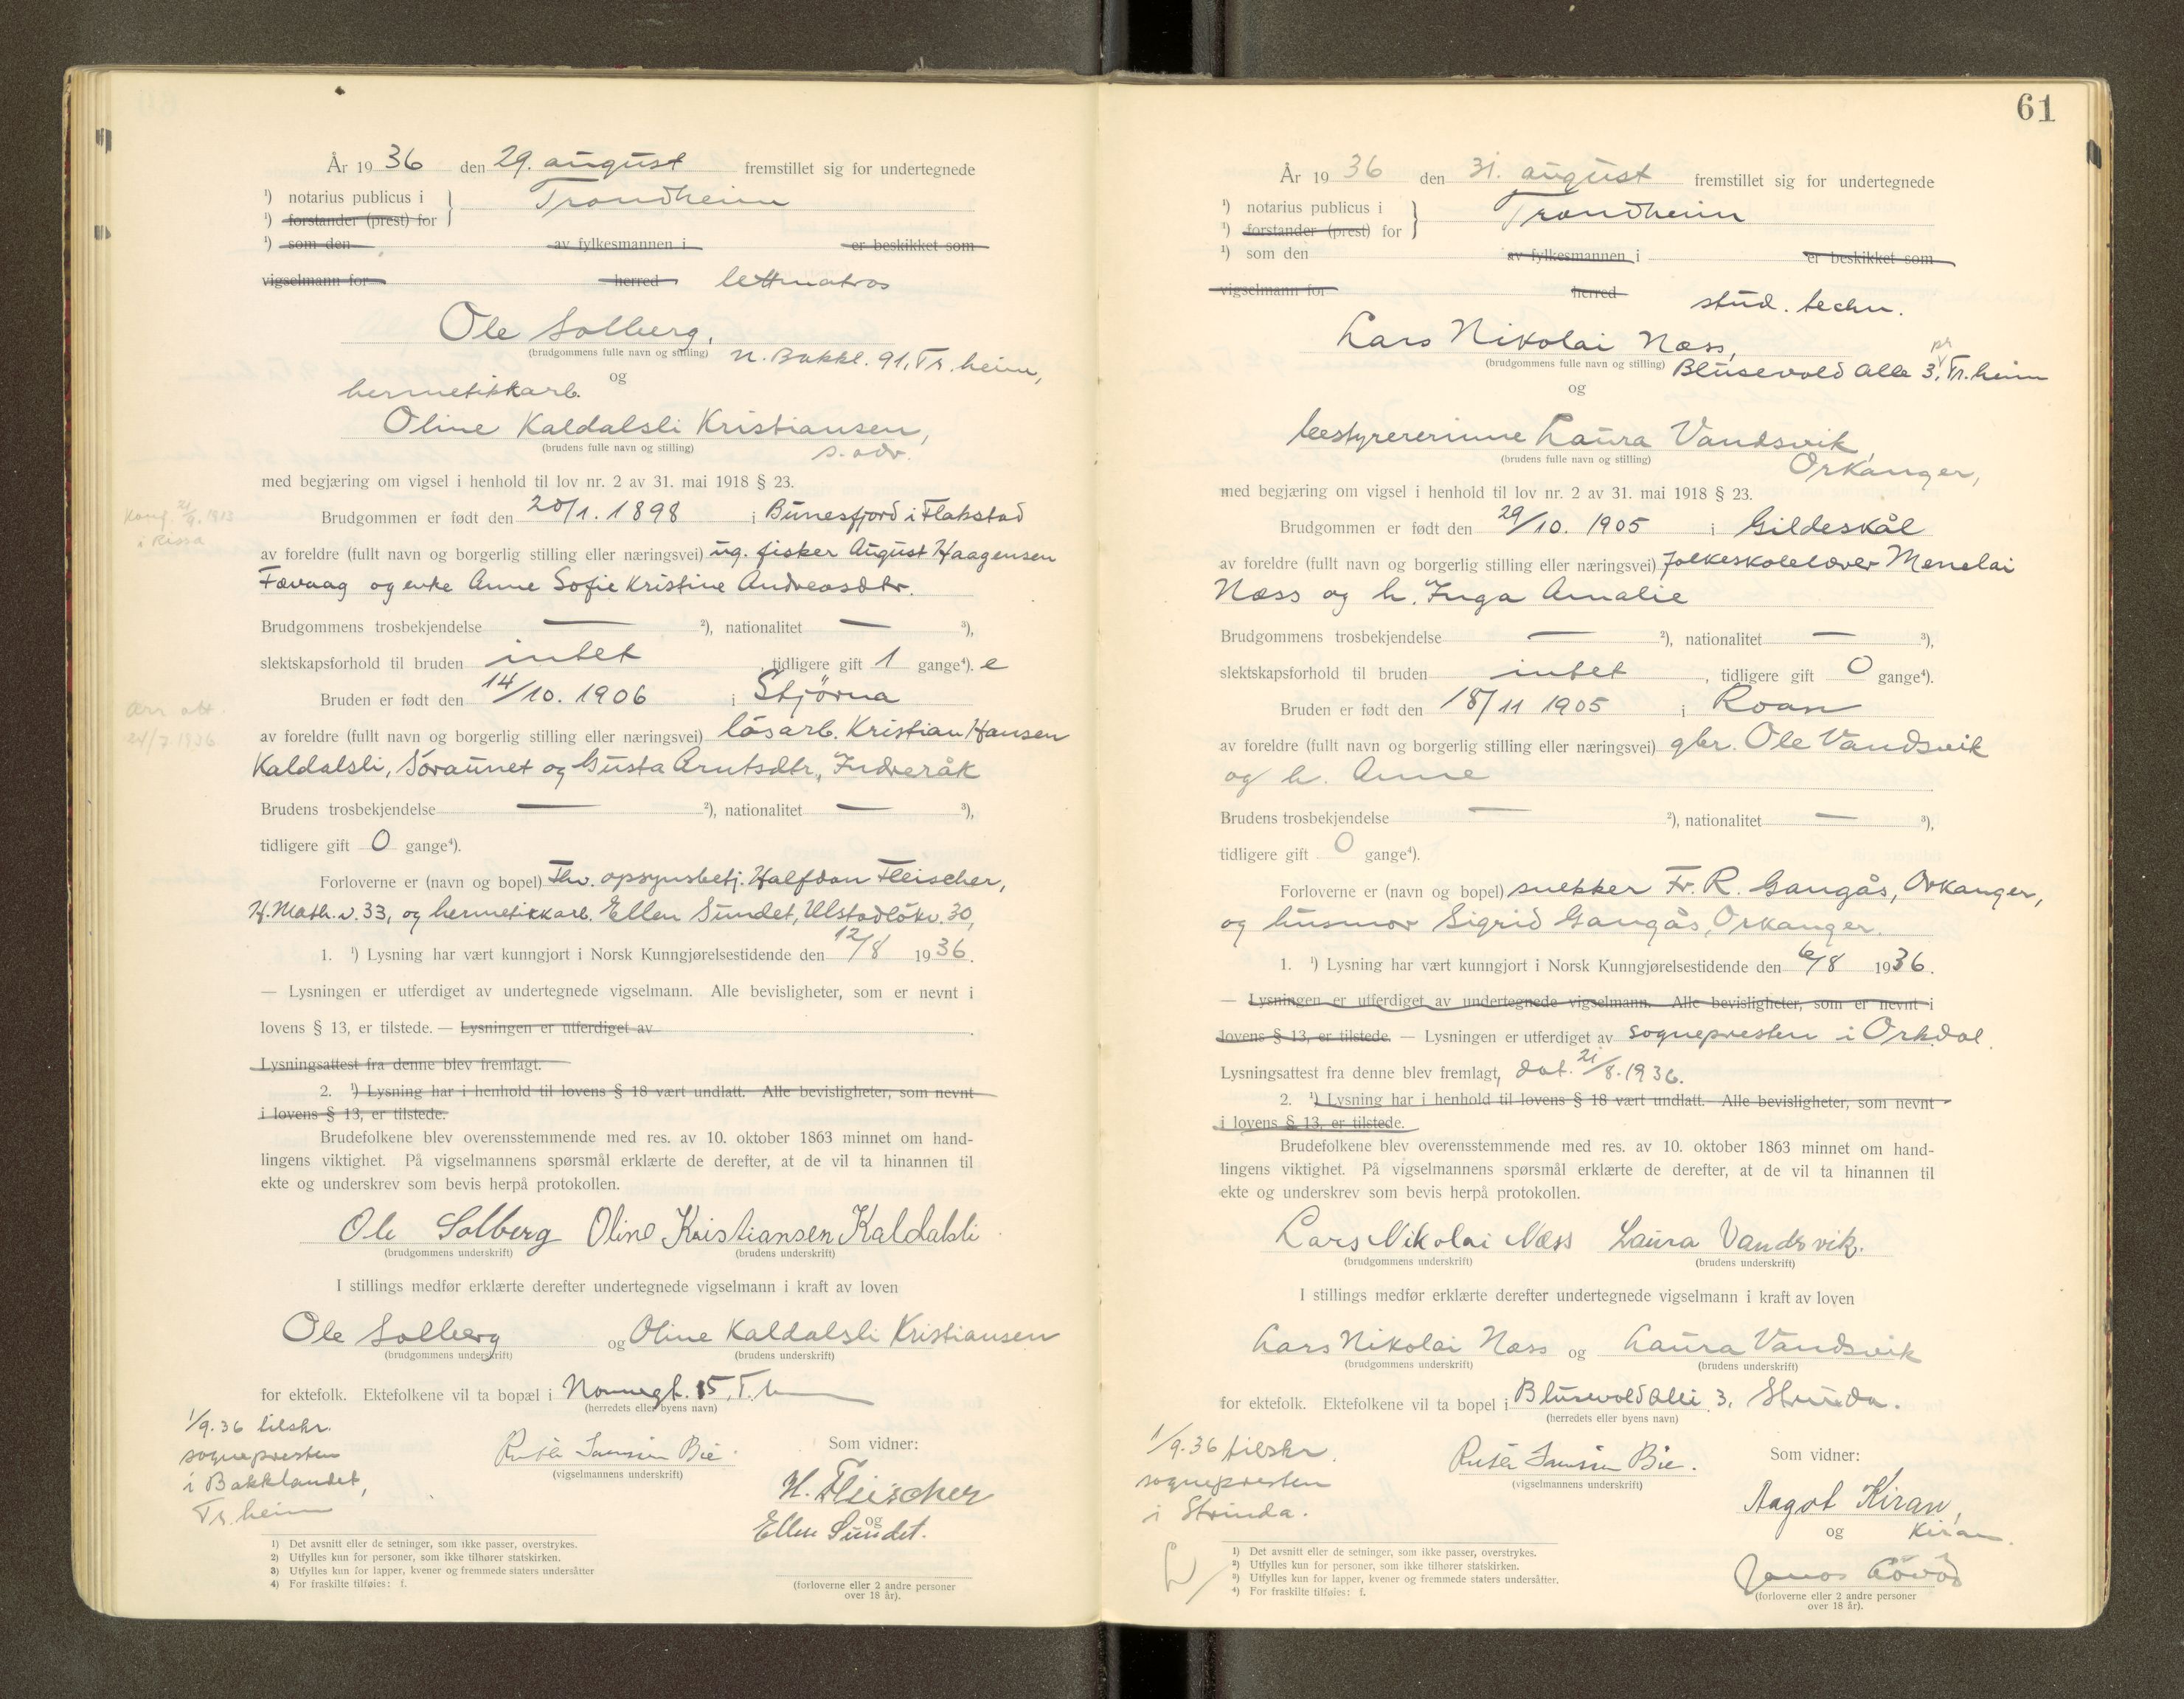 År 1936 den 29. august fremstillet sig for undertegnede
¹) notarius publicus i
¹) forstander (prest) for } Trondheim
¹) som den av fylkesmannen i er beskikket som
vigselmann for herred lettmatros
Ole Solberg,
(brudgommens fulle navn og stilling) N. Bakkl. 91, Tr.heim,
og
hermetikkarb.
Oline Kaldalsli Kristiansen,
(brudens fulle navn og stilling) s. adr.
med begjæring om vigsel i henhold til lov nr. 2 av 31. mai 1918 § 23.
Konf. 21/9. 1913
i Rissa
Brudgommen er født den 20/1. 1898 i Bunesfjord i Flakstad
av foreldre (fullt navn og borgerlig stilling eller næringsvei) ug. fisker August Haagensen
Fævaag og enke Anne Sofie Kristine Andreasdtr.
Brudgommens trosbekjendelse — ²), nationalitet — ³),
slektskapsforhold til bruden intet , tidligere gift 1 gange⁴). e
Bruden er født den 14/10. 1906 i Stjörna
att.
24/7 1936
av foreldre (fullt navn og borgerlig stilling eller næringsvei) løsarb. Kristian Hansen
Kaldalsli, Söraunet og Gusta Arntsdtr., Indreråk
Brudens trosbekjendelse — ²), nationalitet — ³),
tidligere gift 0 gange⁴).
Forloverne er (navn og bopel) Fhv. opsynsbetj. Halfdan Fleischer,
H. Math. v. 33, og hermetikkarb. Ellen Sundet, Ulstadløkv. 30,
1. ¹) Lysning har vært kunngjort i Norsk Kunngjørelsestidende den 12/8 1936.
— Lysningen er utferdiget av undertegnede vigselmann. Alle bevisligheter, som er nevnt i
lovens § 13, er tilstede. — Lysningen er utferdiget av
Lysningsattest fra denne blev fremlagt.
2. ¹) Lysning har i henhold til lovens § 18 vært undlatt. Alle bevisligheter, som nevnt
i lovens § 13, er tilstede.
Brudefolkene blev overensstemmende med res. av 10. oktober 1863 minnet om hand-
lingens viktighet. På vigselmannens spørsmål erklærte de derefter, at de vil ta hinannen til
ekte og underskrev som bevis herpå protokollen.
Ole Solberg Oline Kristiansen Kaldalsli
(brudgommens underskrift) (brudens underskrift)
I stillings medfør erklærte derefter undertegnede vigselmann i kraft av loven
Ole Solberg og Oline Kaldalsli Kristiansen
(brudgommens underskrift) (brudens underskrift)
for ektefolk. Ektefolkene vil ta bopæl i Nonnegt. 15, T.h
(herredets eller byens navn)
1/9.36 tilskr.
sognepresten
i Bakklandet,
Tr.heim
Bie.
(vigselmannens underskrift)
Som vidner:
H. Fleischer
og
Ellen Sundet.
(forloverne eller 2 andre personer
over 18 år).
1) Det avsnitt eller de setninger, som ikke passer, overstrykes.
2) Utfylles kun for personer, som ikke tilhører statskirken.
3) Utfylles kun for lapper, kvener og fremmede staters undersåtter
4) For fraskilte tilføies: f.
61
År 1936 den 31. august fremstillet sig for undertegnede
¹) notarius publicus i
¹) forstander (prest) for } Trondheim
¹) som den av fylkesmannen i er beskikket som
vigselmann for herred stud. techn.
Lars Nikolai Næss,
(brudgommens fulle navn og stilling) Blusevold Alle 3, pr Tr.heim
og
bestyrererinne Laura Vandsvik,
(brudens fulle navn og stilling) Orkanger,
med begjæring om vigsel i henhold til lov nr. 2 av 31. mai 1918 § 23.
Brudgommen er født den 29/10. 1905 i Gildeskål
av foreldre (fullt navn og borgerlig stilling eller næringsvei) folkeskolelærer Menelai
Næss og h. Inga Amalie
Brudgommens trosbekjendelse — ²), nationalitet — ³),
slektskapsforhold til bruden intet , tidligere gift 0 gange⁴).
Bruden er født den 18/11 1905 i Roan
av foreldre (fullt navn og borgerlig stilling eller næringsvei) gbr. Ole Vandsvik
og h. Anne
Brudens trosbekjendelse — ²), nationalitet — ³),
tidligere gift 0 gange⁴).
Forloverne er (navn og bopel) snekker Fr. R. Gangås, Orkanger,
og husmor Sigrid Gangås, Orkanger.
1. ¹) Lysning har vært kunngjort i Norsk Kunngjørelsestidende den 6/8 1936.
— Lysningen er utferdiget av undertegnede vigselmann. Alle bevisligheter, som er nevnt i
lovens § 13, er tilstede. — Lysningen er utferdiget av sognepresten i Orkdal.
Lysningsattest fra denne blev fremlagt, dat. 21/8. 1936.
2. ¹) Lysning har i henhold til lovens § 18 vært undlatt. Alle bevisligheter, som nevnt
i lovens § 13, er tilstede.
Brudefolkene blev overensstemmende med res. av 10. oktober 1863 minnet om hand-
lingens viktighet. På vigselmannens spørsmål erklærte de derefter, at de vil ta hinannen til
ekte og underskrev som bevis herpå protokollen.
Lars Nikolai Næss Laura Vandsvik.
(brudgommens underskrift) (brudens underskrift)
I stillings medfør erklærte derefter undertegnede vigselmann i kraft av loven
Lars Nikolai Næss og Laura Vandsvik
(brudgommens underskrift) (brudens underskrift)
for ektefolk. Ektefolkene vil ta bopel i Blusevold Alle 3, Strinda.
(herredets eller byens navn)
1/9.36 tilskr.
sognepresten
i Strinda.
Bie.
(vigselmannens underskrift)
Som vidner:
Aagot Kiran,
og Kiran.
(forloverne eller 2 andre personer
over 18 år).
1) Det avsnitt eller de setninger, som ikke passer, overstrykes.
2) Utfylles kun for personer, som ikke tilhører statskirken.
3) Utfylles kun for lapper, kvener og fremmede staters undersåtter.
4) For fraskilte tilføies: f.